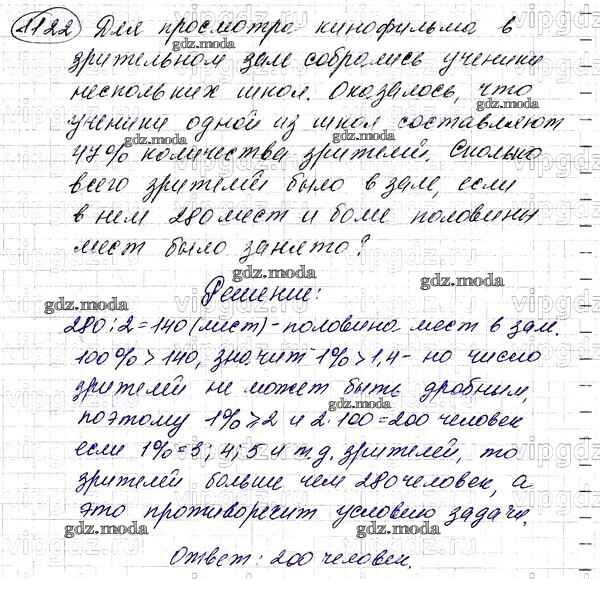 1122 Для просмотра кинофильма в
зрительном зале собрались ученики
нескольких школ. Оказалось, что
ученики одной из школ составляют
47% количества зрителей. Сколько
всего зрителей было в зале, если
в нем 280 мест и более половины
мест было занято?
Решение:
280:2=140 (мест) - половина мест в зале.
100% > 140, значит 1% > 1,4 - но число
зрителей не может быть дробным,
поэтому 1% ≥ 2 и 2·100=200 человек
если 1% = 3; 4; 5 и т.д. зрителей, то
зрителей больше чем 280 человек, а
это противоречит условию задачи.
Ответ: 200 человек.
gdz.moda
gdz.moda
gdz.moda
gdz.moda
gdz.moda
gdz.moda
gdz.moda
gdz.moda
gdz.moda
gdz.moda
gdz.moda
gdz.moda